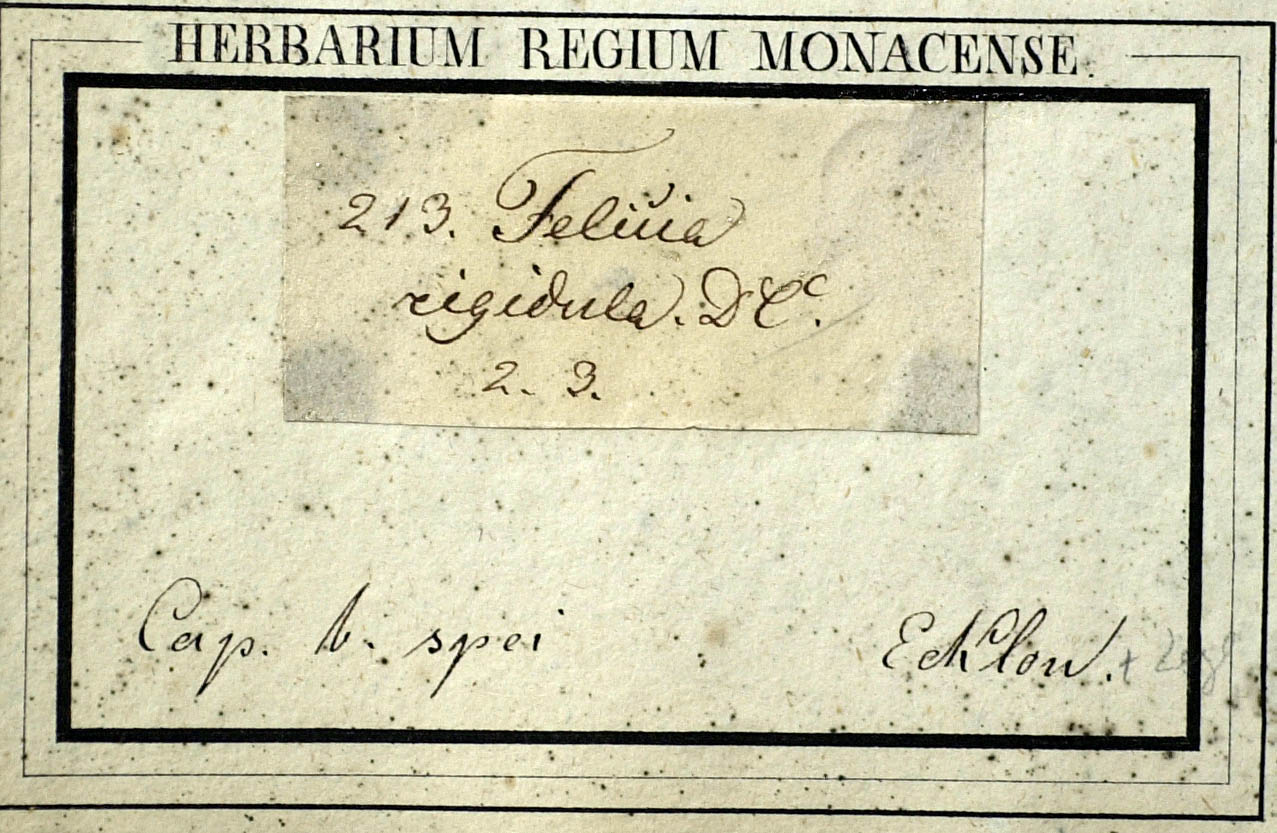 HERBARIUM REGIUM MONACENSE.
213. Felicia
rigidula. DC.
2. 3.
Cap. b. spei
Ecklon. +